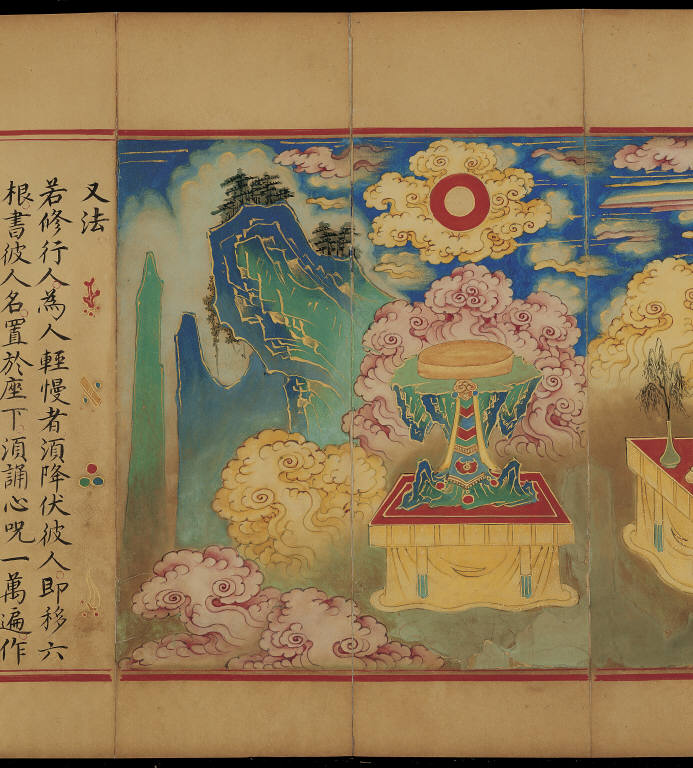 又法
若修行人為人輕慢者須降伏彼人即移六
根書彼人名置於座下須誦心咒一萬遍作